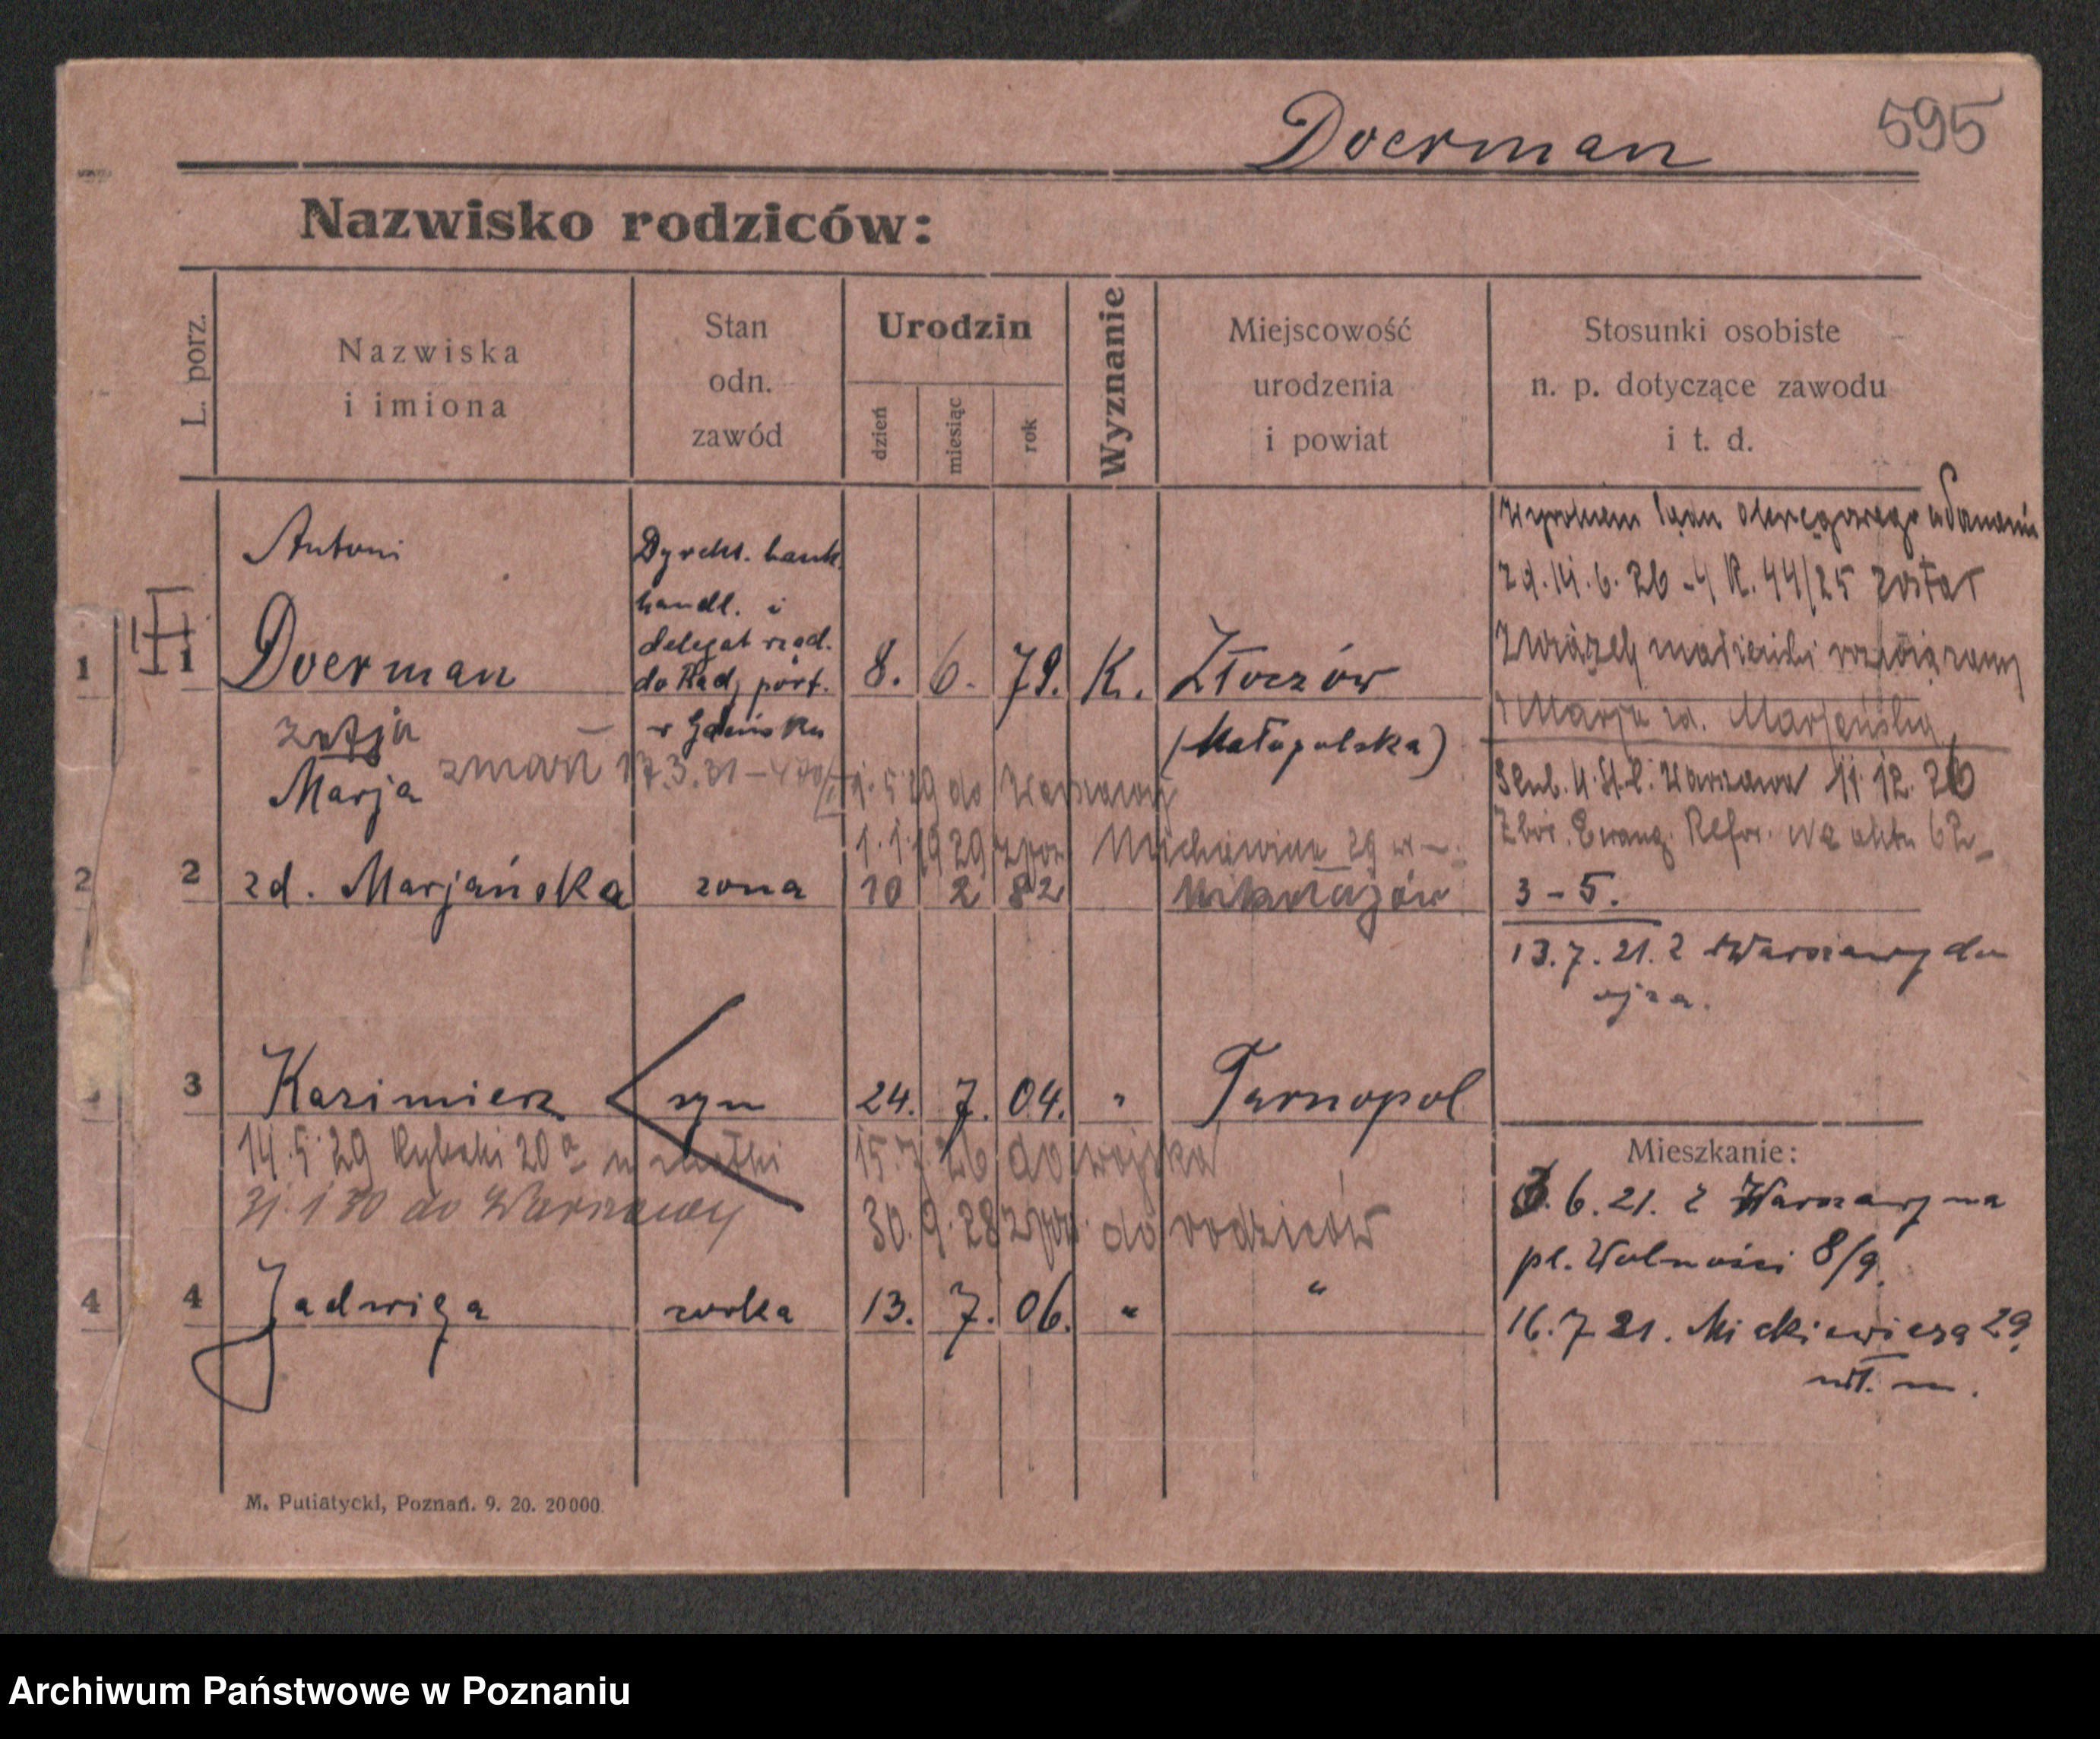 Doerman 595
Nazwisko rodziców:
L. porz.
Nazwiska
i imiona
Stan
odn.
zawód
Urodzin
dzień
miesiąc
rok
Wyznanie
Miejscowość
urodzenia
i powiat
Stosunki osobiste
n. p. dotyczące zawodu
i t. d.
Antoni
1 1 Doerman
Dyrekt. bank.
handl. i
delegat rząd.
do Rad. port.
w Gdańsku
8. 6. 79. K. Złoczów
(Małopolska)
Wyrokiem sądu okręgowego w Poznaniu
z d. 14. 6. 26 - 4 R. 44/25 został
związek małżeński rozwiązany
Marja zd. Marjańską
Marja
zmarł 17.3.31
5 29 do Warszawy
1.1.1929 Mickiewicza 29
2 2 zd. Marjańska żona 10 2 82 Mikołajów
Warszawa 11. 12. 26
Zbór. Ewang. Refor.
3 - 5.
13.7.21. z Warszawy do
ojca.
3 Kazimierz syn 24. 7. 04. " Tarnopol
14.5.29 Rybaki 20a u matki
31.1 30 do Warszawy
15.7.26 do wojska
30.9.28 do rodziców
4 4 Jadwiga córka 13. 7. 06. " "
Mieszkanie:
6.21. z Warszawy na
pl. Wolności 8/9.
16.7 21. Mickiewicza 29
wł. m.
M. Putiatycki, Poznań. 9. 20. 20000.
Archiwum Państwowe w Poznaniu